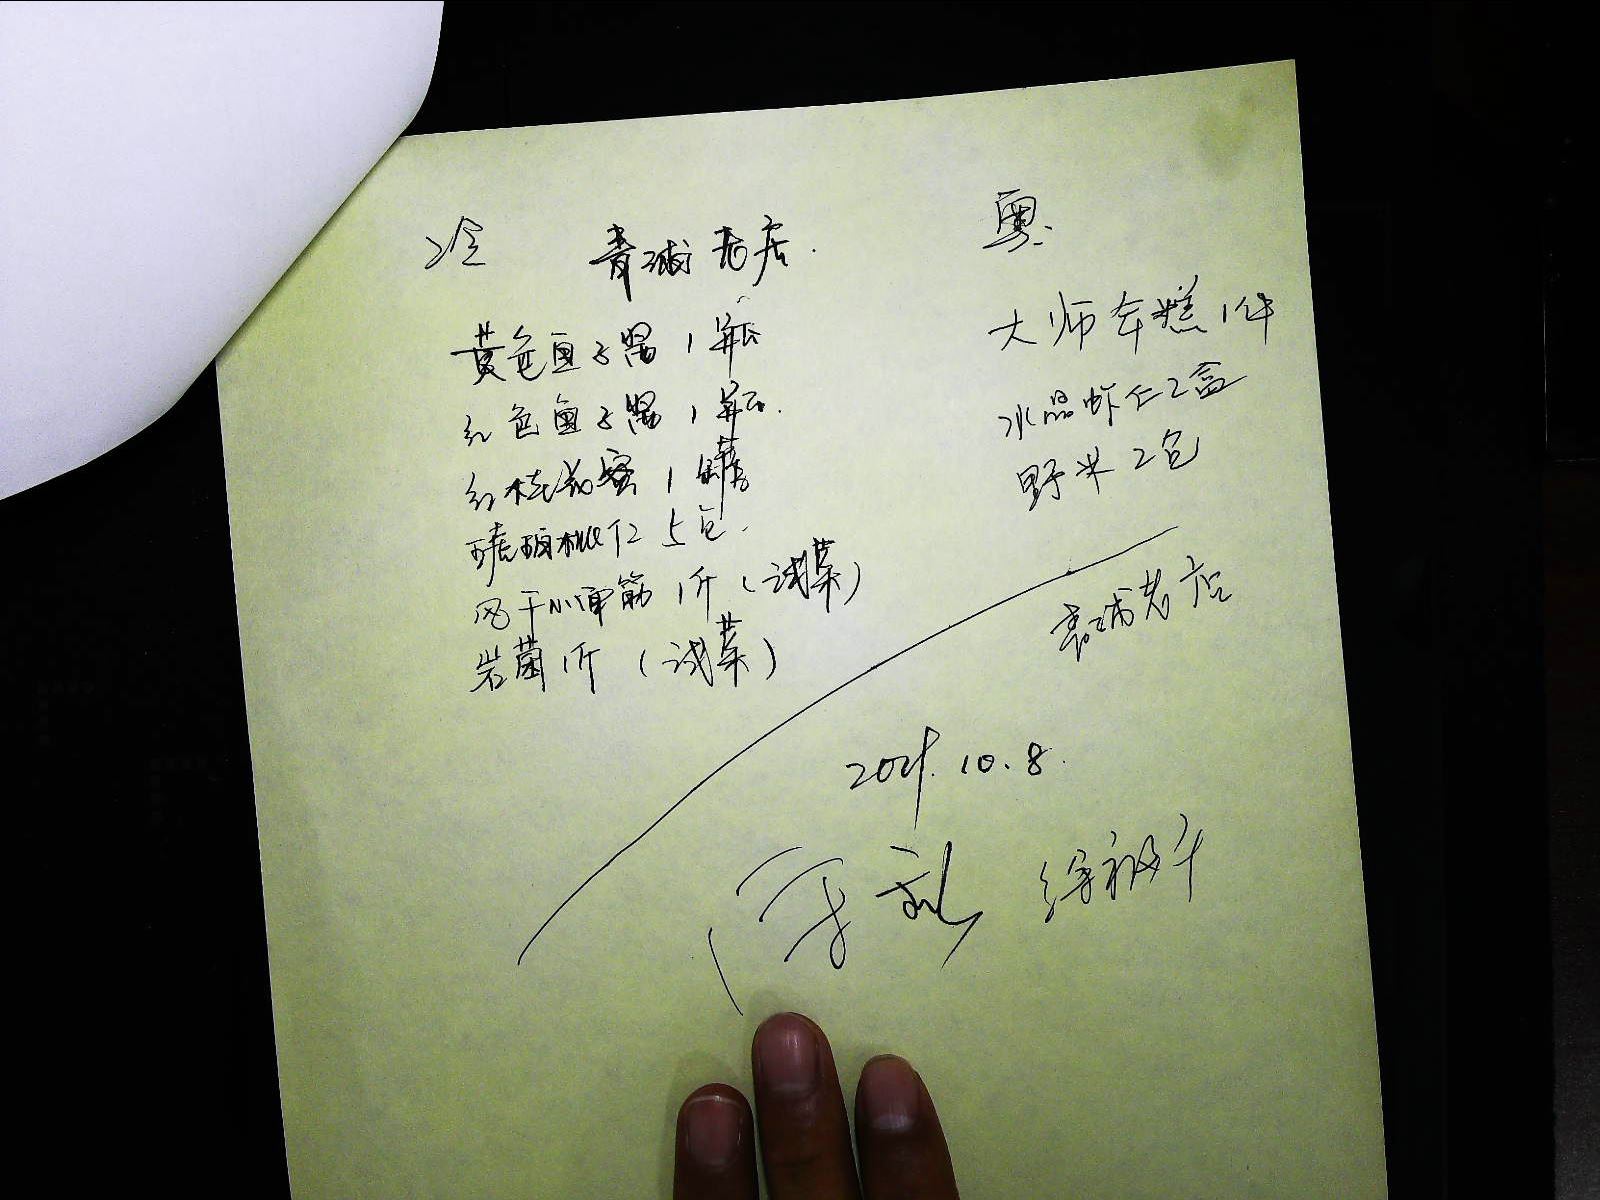 冷 青城老店.
黄色鱼子酱1瓶
红色鱼子酱1瓶.
红桂花蜜1罐
琥珀桃仁5包.
风干小牛筋1斤(试菜)
岩菌1斤(试菜)
粤:
大师年糕1件
水晶虾仁2盒
野米2包
青城老店
2021.10.8.